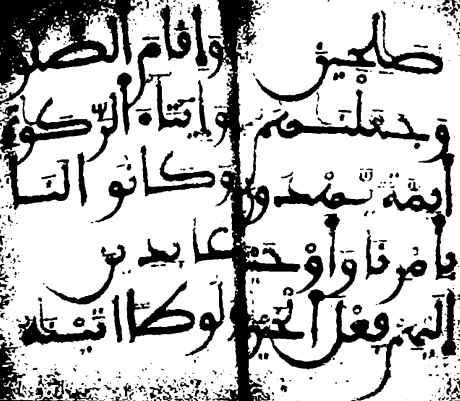 صلحين
وجعلنهم
أيمة يهدون
بأمرنا وأوحينا
إليهم فعل الخيرت
وإقام الصلو
ة وإيتاء الزكوة
وكانوا لنا
عابدين
ولوطا اتينه